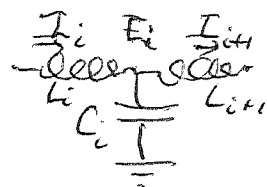 I_i E_i I_{i+1}
L_i L_{i+1}
C_i